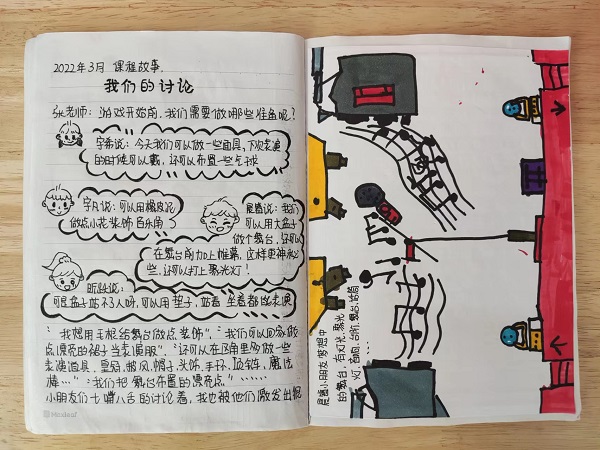 2022年3月 课程故事.
我们的讨论
张老师: 游戏开始前,我们需要做哪些准备呢?
宇希说: 今天我们可以做一些面具,下次表演
的时候可以戴,还可以布置一些气球
宇凡说: 可以用橡皮泥
做点小花装饰音乐角
晨睿说: 我们
可以用大盒子
做个舞台,还可以
在舞台前加上帷幕,这样更神秘
些,还可以打上聚光灯!
说:
可是盒子站不了人呀,可以用垫子,站着 坐着都能表演
"我想用毛根给舞台做点装饰","我们可以回家做
点漂亮的裙子当表演服","还可以在区角里多做一些
表演道具,皇冠,披风,帽子,头饰,手环,
棒…","我们把舞台布置的漂亮点"……
小朋友们七嘴八舌的讨论着,我也被他们激发出
晨睿小朋友梦想中
的舞台,有灯光,聚光
灯,音响,台阶,舞台话筒